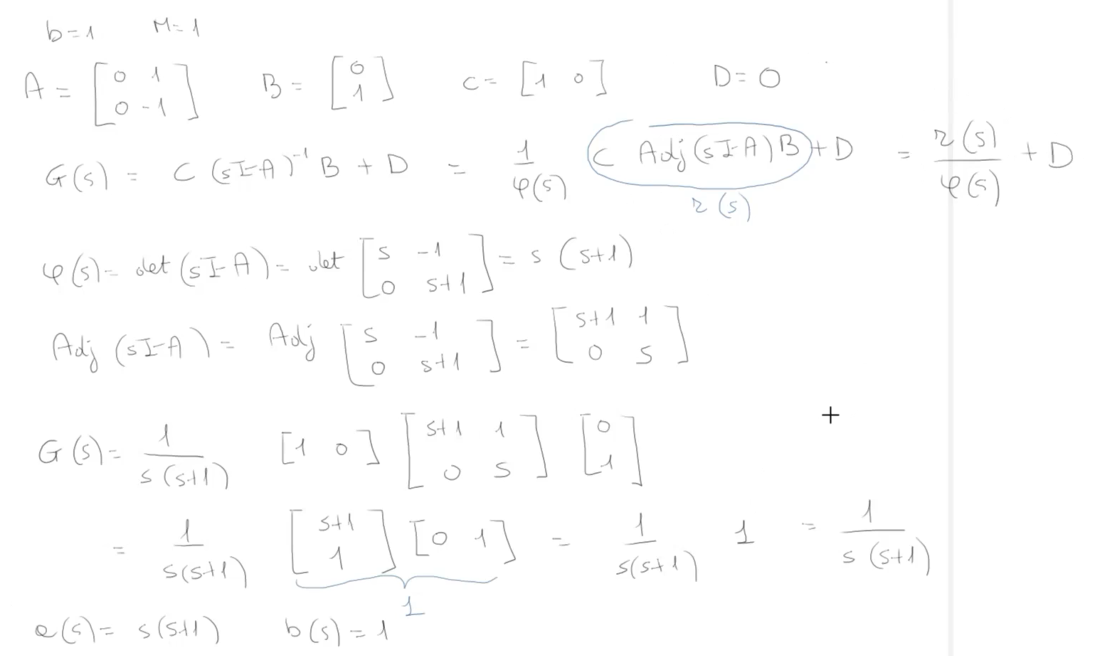 b=1 M=1
A = [0 1; 0 -1] B = [0; 1] C = [1 0] D = 0
G(s) = C (sI-A)⁻¹ B + D = 1/φ(s) C Adj(sI-A) B + D = r(s)/φ(s) + D
r(s)
φ(s) = det (sI-A) = det [s -1; 0 s+1] = s (s+1)
Adj (sI-A) = Adj [s -1; 0 s+1] = [s+1 1; 0 s]
G(s) = 1/s(s+1) [1 0] [s+1 1; 0 s] [0; 1]
= 1/s(s+1) [s+1; 1] [0 1] = 1/s(s+1) 1 = 1/s(s+1)
1
a(s) = s(s+1) b(s) = 1